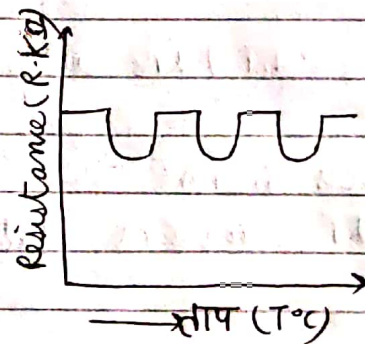 Resistance (R-KΩ)
ताप (T°C)